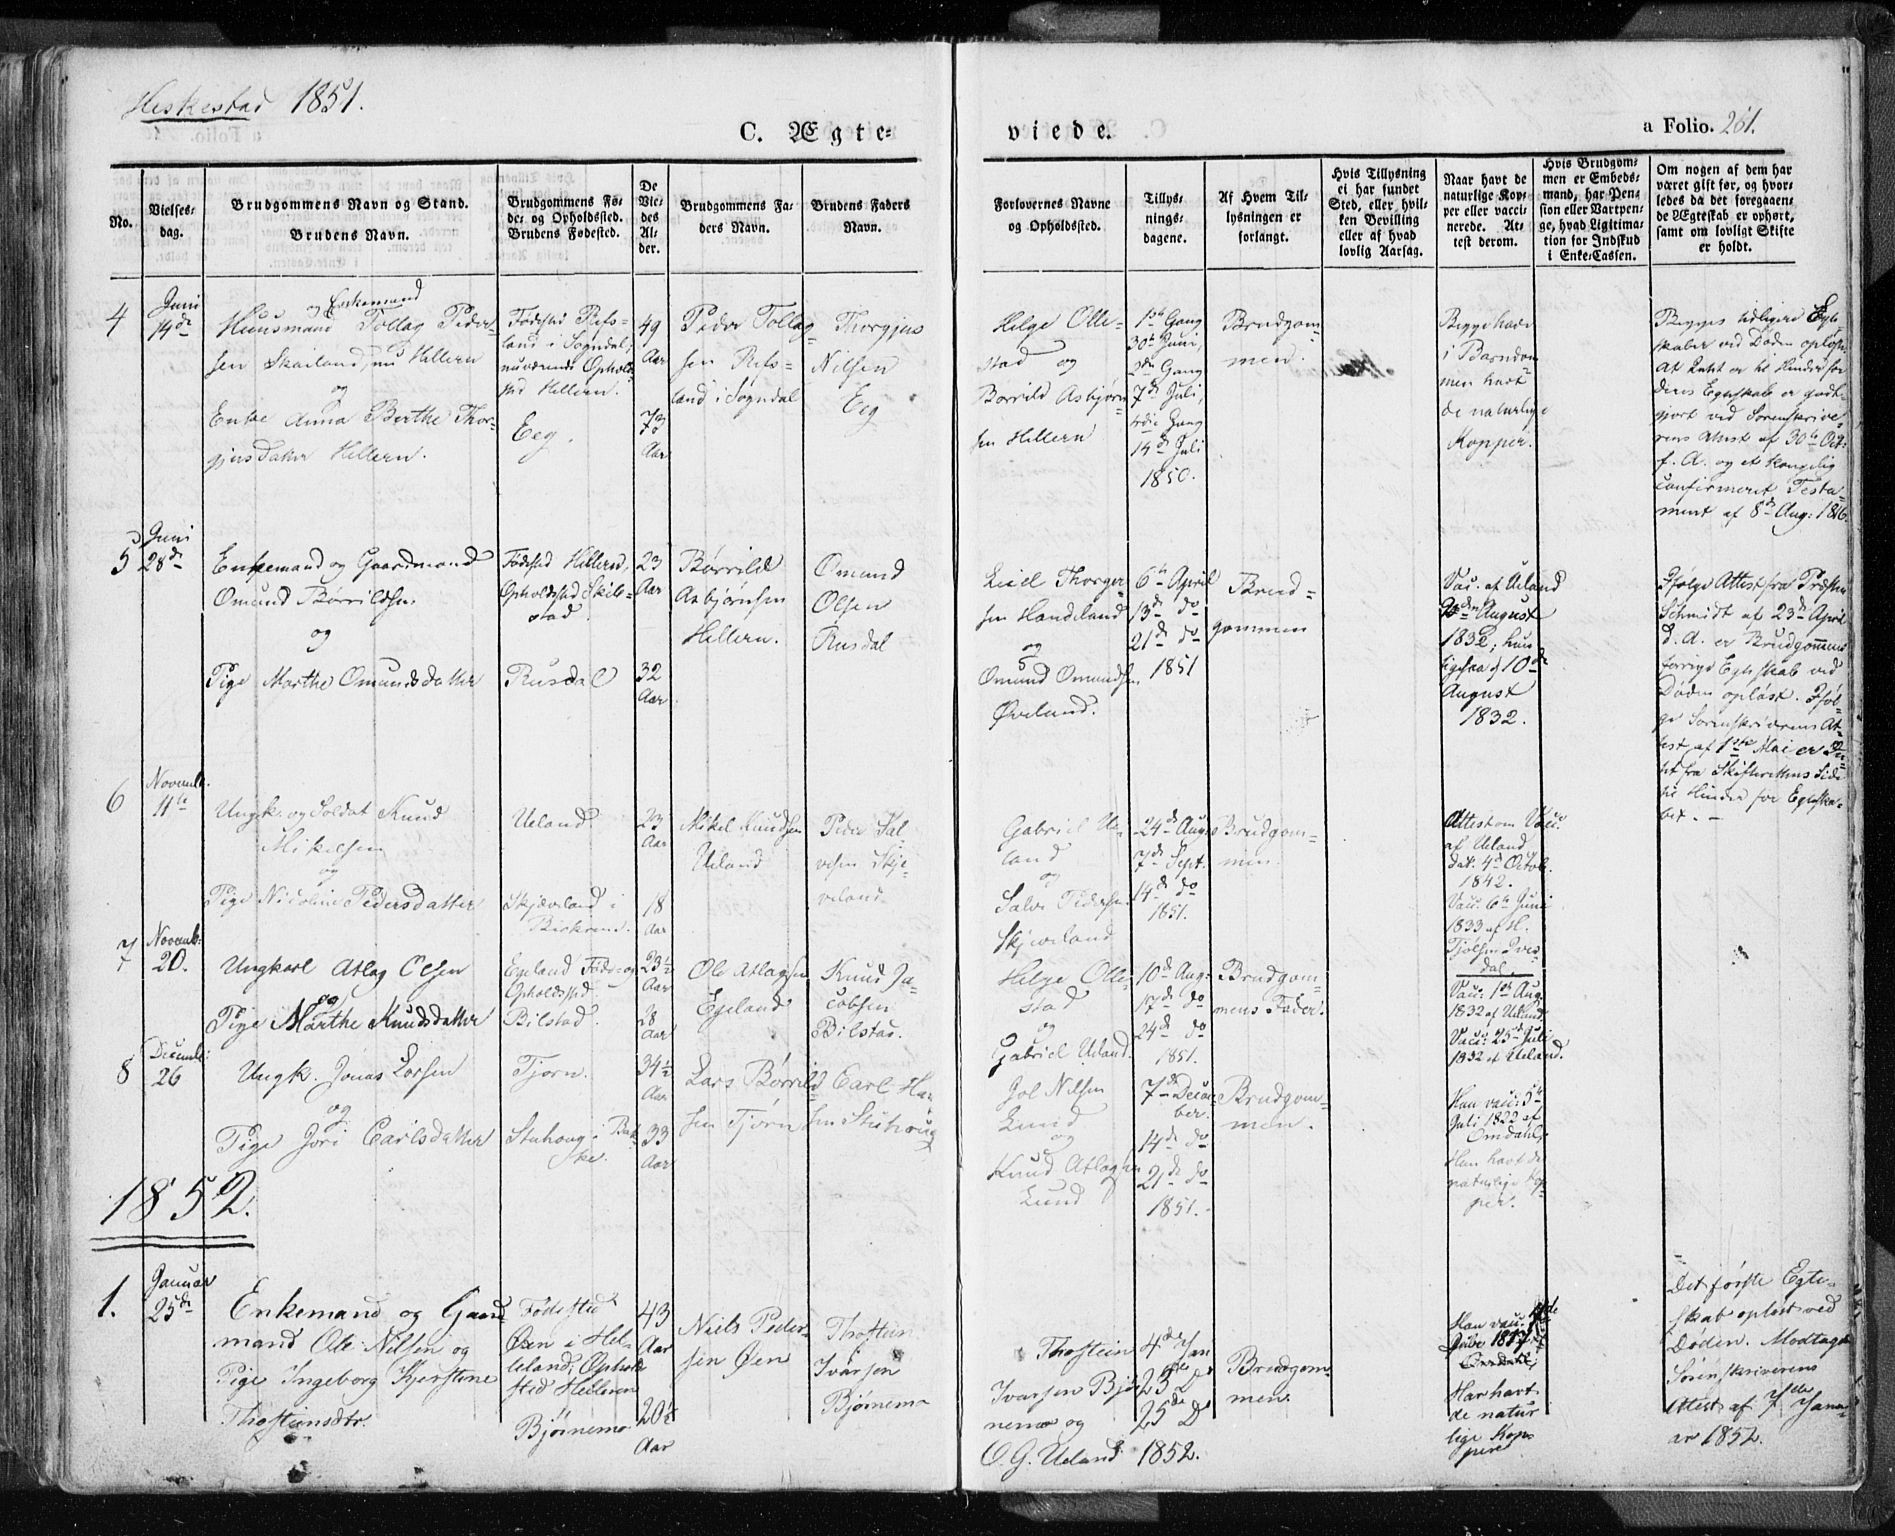 Heskestad 1851.
C. Ægte-
viede.
a Folio. 261.
No.
Vielses-
dag.
Brudgommens Navn og Stand.
Brudens Navn.
Brudgommens Fø-
de- og Opholdssted.
Brudens Fødested.
De
Vie-
des
Al-
der.
Brudgommens Fa-
ders Navn.
Brudens Faders
Navn.
Forlovernes Navne
og Opholdssted.
Tillys-
nings-
dagene.
Af Hvem Til-
lysningen er
forlangt.
Hvis Tillysning
ei har fundet
Sted, eller hvil-
ken Bevilling
eller af hvad
lovlig Aarsag.
Naar havt de
naturlige Kop-
per eller vacci-
nerede. At-
test derom.
Hvis Brudgom-
men er Embeds-
mand, har Pen-
sion eller Vartpen-
ge, hvad Ligitima-
tion for Indskud
i Enke-Cassen.
Om nogen af dem har
været gift før, og hvor-
ledes da det foregaaen-
de Ægteskab er ophørt,
samt om lovligt Skifte
er holdt.
4
Juni
14de
og Enkemand
Huusmand Tollag Peder-
sen Skailand, nu Hillern
og
Enke Anna Berthe Thor-
gjusdatter Hillern.
Fødested Refs-
land i Sogndal,
nuværende Ophold-
sted Hillern.
Eeg.
49
Aar
73
Aar
Peder Tollag-
sen Refs-
land i Sogndal
Thorgjus
Nilsen
Eeg
Helge Olle-
stad og
Børrild Asbjørn-
sen Hillern
1ste Gang
30te Juni,
2den Gang
7de Juli,
3die Gang
14de Juli
1850.
Brudgom-
men.
Begge have
i Barndom-
men havt
de naturlige
Kopper.
Begges tidligere Egte-
skaber ved Døden opløst.
At Intet er til Hinder for
deres Egteskab er godt-
gjort ved Sorenskrive-
rens Attest af 30te Oct:
f. A. og et kongelig
confirmeret Testa-
ment af 8de Aug: 1816.
5
Juni
28de
Enkemand og Gaardmand
Omund Børrildsen
og
Pige Marthe Omundsdatter
Fødested Hillern,
Opholdssted Skils-
stad.
Rusdal
23
Aar
32
Aar
Børrild
Asbjørnsen
Hillern.
Omund
Olsen
Rusdal
Eiel Thorger-
sen Handeland
og
Omund Omundsen
Øveland.
6te April
13de do
21de do
1851
Brud-
gommen
Vac: af Ueland
August
1832; hun
ligesaa 10de
August
1832.
Ifølge Attest fra Præsten
Schmidt af 23de April
d. A. er Brudgommens
forrige Egteskab ved
Døden opløst. Iføl-
ge Sorenskriverens At-
test af 1ste Mai er In-
tet fra Skifterettens Side
til Hinder for Egteska-
bet. -
6
Novemb.
11te
Ungk. og Soldat Knud
Mikelsen
og
Pige Nicoline Pedersdatter
Ueland
Skjæveland i
Birkrem.
23
Aar
18
Aar
Mikel Knudsen
Ueland
Peder Sal-
vesen Skje-
veland
Gabriel Ue-
land
og
Salve Pedersen
Skjeveland
24de Aug:
7de Sept.
14de do
1851.
Brudgom-
men.
Attest om Vac:
af Ueland
dat. 4de Octob.
1842.
Vac: 6te Juni
1833 af H.
7
Novemb:
20.
Ungkarl Atlag Olsen
og
Pige Marthe Knudsdatter
Egeland Føde- og
Opholdssted.
Bilstad.
23½
Aar
28
Aar
Ole Atlagsen
Egeland
Knud Ja-
cobsen
Bilstad.
Helge Olle-
stad
og
Gabriel Ueland.
10de Aug:
17de do
24de do
1851.
Brudgom-
mens Fader.
Vac: 1ste Aug.
1832 af Ueland.
Vac: 25de Juli
1832 af Ueland.
8
Decemb:
26
Ungk. Jonas Larsen
og
Pige Jori Carlsdatter
Tjørn.
Stuhoug i Bak-
ke.
34½
Aar
33
Aar
Lars Børrild-
sen Tjørn
Carl Han-
sen Stuhoug
Jol Nilsen
Lund
og
Knud Atlagsen
Lund
7de Decem-
ber.
14de do
21de do
1851.
Brudgom-
men.
Han vac: 5te
Juli 1822 af
Omdahl,
Hun havt de
naturlige Kop-
per.
1852.
1.
Januar
25de
Enkemand og Gaard-
mand Ole Nilsen og
Pige Ingeborg Kjerstine
Thosteinsdtr.
Fødested
Øen i Hel-
leland; Ophold-
sted Helleren
Bjørnemo
43
Aar
20½
Aar
Niels Peder-
sen Øen
Thostein
Ivarsen
Bjørnemo
Thostein
Ivarsen Bjør-
nemo og
O. G. Ueland
4de Jan
25de D
1852.
Brudgom-
men.
Han vac:
Omdahl;
Har havt
de natur-
lige Kop-
per
Det første Egte-
skab opløst ved
Døden. Modtaget
Sorenskriverens
Attest af 7de Janu-
ar 1852.